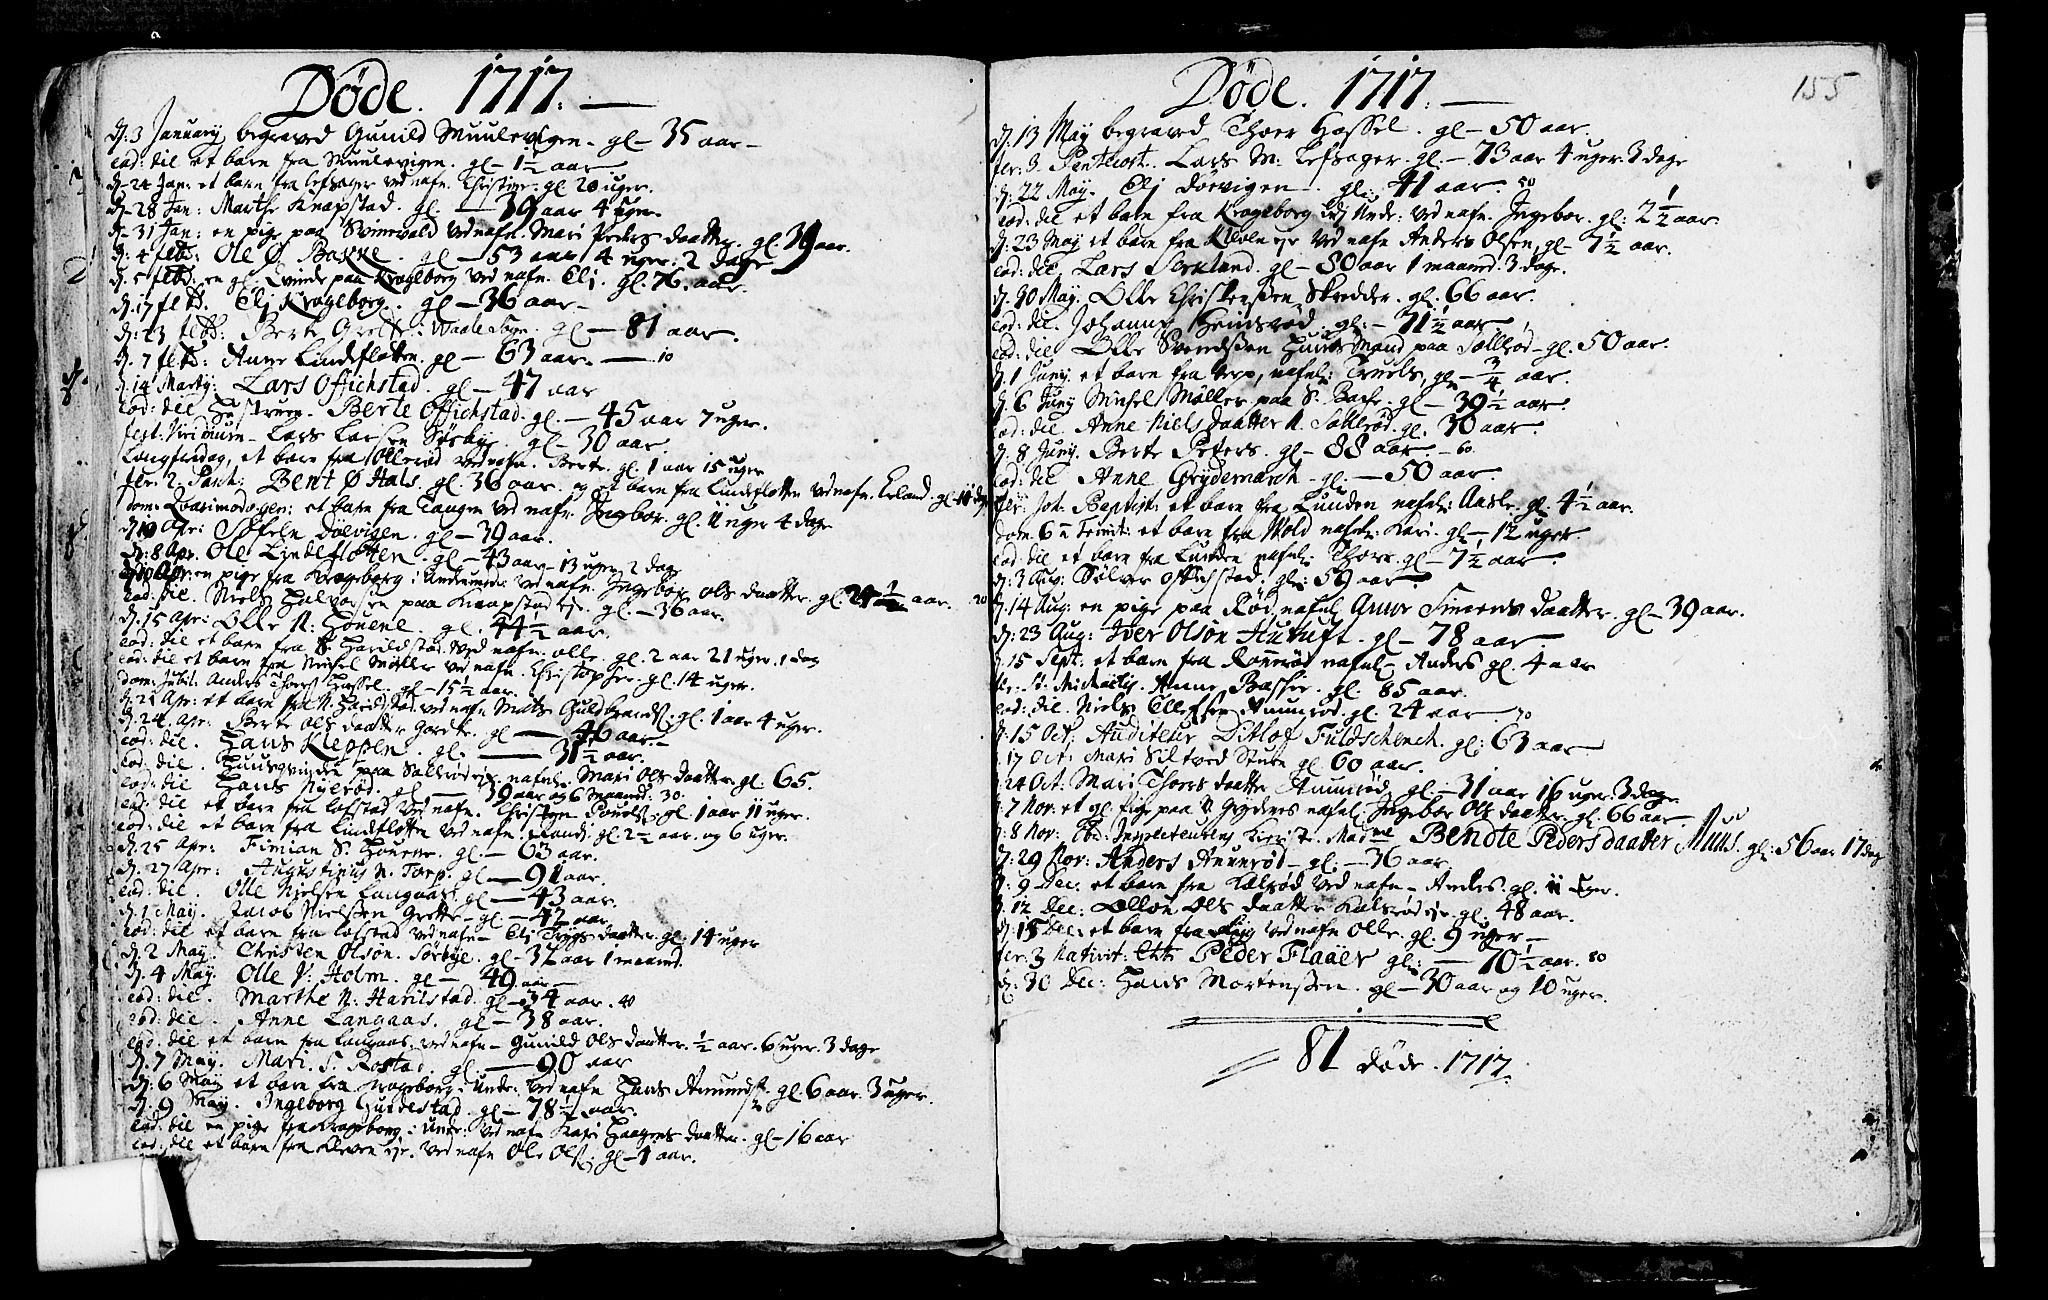 Døde. 1717.
d: 3 January begraved Gunild Muulevigen. gl – 35 aar –
eod: die et barn fra Muulevigen. gl – 1½ aar.
d. 24 Jan: et barn fra Lefsager ved nafn. Christine: gl. 20 uger.
d. 28 Jan: Marthe Knapstad. gl. – 39 aar 4 uger.
d. 31 Jan: en pige paa Svinevald ved nafn. Mari Peders daatter. gl. 39 aar.
d: 4 febr: Ole Ø Bakke. gl – 53 aar 4 uger: 2 dage
d. 5 febr: en gl. Qvinde paa Krageborg ved nafn. Eli. gl. 76. aar.
d. 17 febr. Eli Krageborg. gl – 36 aar –
d: 23 febr: Berte i Waale Sogn. gl – 81 aar.
d. 7 febr: Anne Lindefloten. gl – 63 aar. – 10
d. 14 Marty: Lars Offichstad. gl – 47 aar
eod: die Hustruen. Berte Offichstad. gl. – 45 aar 7 uger.
fest: Viridium – Lars Larsen Sørbye. gl – 30 aar.
Langfredag, et barn fra Ollerød ved nafn. Berte. gl. 1 aar 15 uger
fer: 2 Pasch: Bent Ø Hals. gl 36 aar. og et barn fra Lindefloten ved nafn. Erland. gl. 11 dage
dom: Quasimodogen: et barn fra Tangen ved nafn. Ingebor. gl. 11 uger 4 dage
d. 10 Apr: Døevigen. gl – 39 aar.
d: 8 Apr. Ole Lindefloten. gl – 43 aar – 13 uger 2 dage
d. 10 Apr: en pige fra Krageborg i Underuede ved nafn. Ingebor Ols daatter. gl. 24½ aar. 20
eod: die. Niels Halvorsen paa Knapstad eje. gl. – 36 aar.
d: 15 Apr: Olle N: Honene. gl. 44½ aar.
eod: die et barn fra N Harildstad ved nafn. Olle. gl. 2 aar 21 uger. 1 dag
eod: die et barn fra Michel Møller ved nafn. Christopher. gl. 14 uger.
dom: Jubil: Anders Thorers Hassel. gl – 15½ aar.
d. 21 Apr: et barn fra N. Harildstad ved nafn Mats Guldbrands: gl. 1 aar 4 uger.
d. 24. Apr: Berte Ols daatter Gorde. gl – 46 aar. –
eod: die. Hans Kleppen. gl. – 31½ aar.
eod: die. Huusqvinde paa Sollerød eje. nafnl: Mari Ols daatter. gl. 65.
eod: die Hans Nyerød. gl – 39 aar og 6 maaned. 30.
eod: die et barn fra Lofstad ved nafn. Christen Pouels: gl. 1 aar 11 uger.
eod: die et barn fra Lindefloten ved nafn. Rands. gl. 2½ aar. og 6 uger.
d. 25 Apr: Simian S. Honene. gl. – 63 aar.
d. 27 Apr: Augustinus N. Torp. gl – 91 aar.
eod: die. Olle Nielsen Langaas. gl – 43 aar.
d. 1 May. Jacob Nielsen Grette – gl – 42 aar
eod: die et barn fra Lofstad ved nafn – Eli daatter. gl: 14 uger
d. 2 May. Christen Olsön. Sørbye. gl – 32 aar 1 maaned.
d. 4 May. Olle V: Holm. gl – 49. aar –
eod: die. Marthe N: Harilstad. gl – 34 aar. 40
eod: die. Anne Langaas. gl – 38 aar.
eod: die et barn fra Langaas, ved nafn – Gunild Ols daatter. ½ aar. 6 uger. 3 dage
d. 7 May. Mari. S. Rostad. gl. – 90 aar
d: 6 May et barn fra Krageborg. Unde: ved nafn Hans Amunds. gl. 6 aar. 3 uger.
d. 9 May. Ingeborg Huidestad. gl – 78½ aar.
eod: die en pige fra Krageborg i Unde: ved nafn Kari Haagens daatter. gl – 16 aar
eod: die et barn fra Kleven eje. ved nafn Ole Ols: gl – 1 aar.
Døde. 1717.
155
d: 13 May begraved Thoer Hassel. gl – 50 aar.
fer: 3. Pentecost. Lars M: Lefsager. gl – 73 aar 4 uger 3 dage
d: 22 May. Eli Døevigen. gl: 41 aar. 50
eod: die et barn fra Krageborg i Unde: ved nafn. Ingebor. gl: 2½ aar.
d: 23 May et barn fra Kleve eje ved nafn Anders Olsen, gl – 7½ aar.
eod: die Lars Serklund. gl – 80 aar 1 maaned. 3 dage.
d. 30 May. Olle Christensen Skredder. gl. 66 aar.
eod: die. Johannes Heinsrød. gl: – 71½ aar
eod: die Olle Svendsen Huus Mand paa Sollrød – gl. 50 aar.
d. 1 Juny. et barn fra Torp, nafnl: Truels, gl – ¾ aar.
d. 6 Juny Michel Møller paa S. Bache. gl – 39½ aar.
eod: die. Anne Nielsdaatter N Sollerød. gl. 30 aar.
d. 8 Juny. Berte Peters. gl – 88 aar. – 60.
eod: die Anne Grydemarch – gl. – 50 aar.
fer: Joh: Baptist: et barn fra Lunden nafnl: Aasle. gl. 4½ aar.
dom: 6 Trinit: et barn fra Vold nafnl: Kari. gl –, 12 uger
eod: die et barn fra Lunden nafnl: Thore. gl – 7½ aar.
d: 3 Aug: Sølver Offichstad. gl: 59 aar.
d. 14 Aug: en pige paa Rød, nafnl Anne Simens daatter. gl – 39 aar.
d: 23 Aug: Iver Olsön Hutuft. gl – 78 aar
d. 15 Sept: et barn fra Romsrød nafnl – Anders gl. 4 aar
fer: St: Michaelis. Anne Bachie. gl. 85 aar.
eod: die. Niels Ellefsen Amunrød. gl. 24 aar. 70
d: 15 Oct: Auditeur Ditlof Fuldschench. gl: 63 aar
17 Oct: Mari Siltved Stuen gl 60 aar.
24 Oct: Mari Thorers daatter Amunrød, gl. – 31 aar 16 uger. 3 dage
7 Nov: et gl. Pige paa N Gryders nafnl, Ingebor Ols daatter. gl. 66 aar
d: 8 Nov: Inspecteurens Mad<sup>me</sup> Bendte Pedersdaatter Nuus. gl: 56 aar 17 dage
d: 29 Nov: Anders Amunrød – gl: – 36 aar
d: 9 Dec: et barn fra Kalsrød ved nafn – Anders. gl. 11 uger.
d. 12 Dec: Olle Ols daatter Kalsrød eje. gl. 48 aar.
d: 15 Dec: et barn fra Ryg ved nafn Olle. gl. 9 uger –
fer: 3 Nativit: Chr: Peder Flaaer gl: – 70½ aar. 80
d: 30 Dec: Hans Mortensen. gl – 30 aar og 10 uger.
81 døde. 1717.